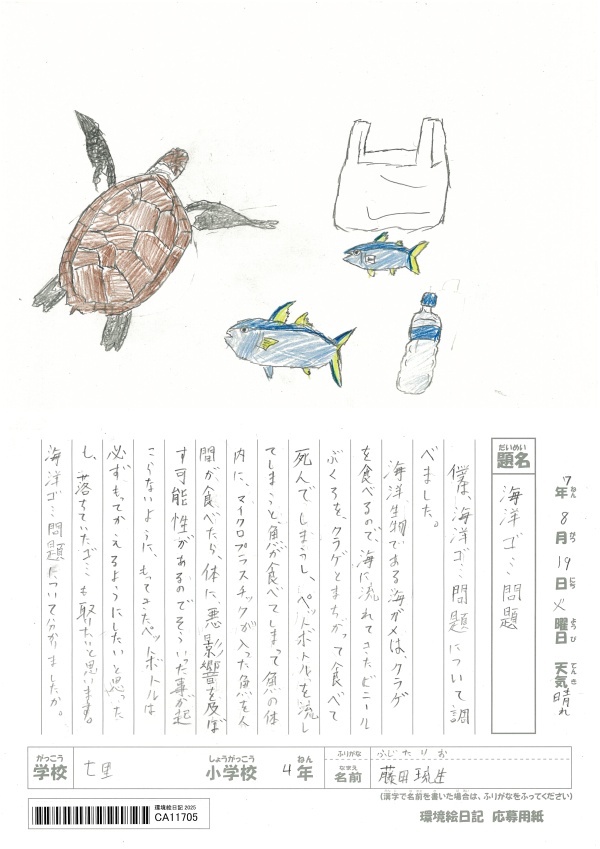 だいめい
題名
海洋ゴミ問題
7年ねん8月がつ19日にち火曜日ようび天気てんき晴れ
僕は、海洋ゴミ問題について調
べました。
海洋生物である海ガメは、クラゲ
を食べるので、海に流れてきたビニール
ぶくろを、クラゲとまちがって食べて
死んでしまうし、ペットボトルを流し
てしまうと、魚が食べてしまって魚の体
内に、マイクロプラスチックが入った魚を人
間が食べたら、体に、悪影響を及ぼ
す可能性があるのでそういった事が起
こらないように、もってきたペットボトルは
必ずもってかえるようにしたいと思った
し、落ちていたゴミも取りたいと思います。
海洋ゴミ問題について分かりましたか。
がっこう
学校
七里
しょうがっこう
小学校
4
ねん
年
ふりがな
ふじたりお
なまえ
名前
藤田琉生
(漢字で名前を書いた場合は、ふりがなをふってください)
環境絵日記 2025
CA11705
環境絵日記 応募用紙